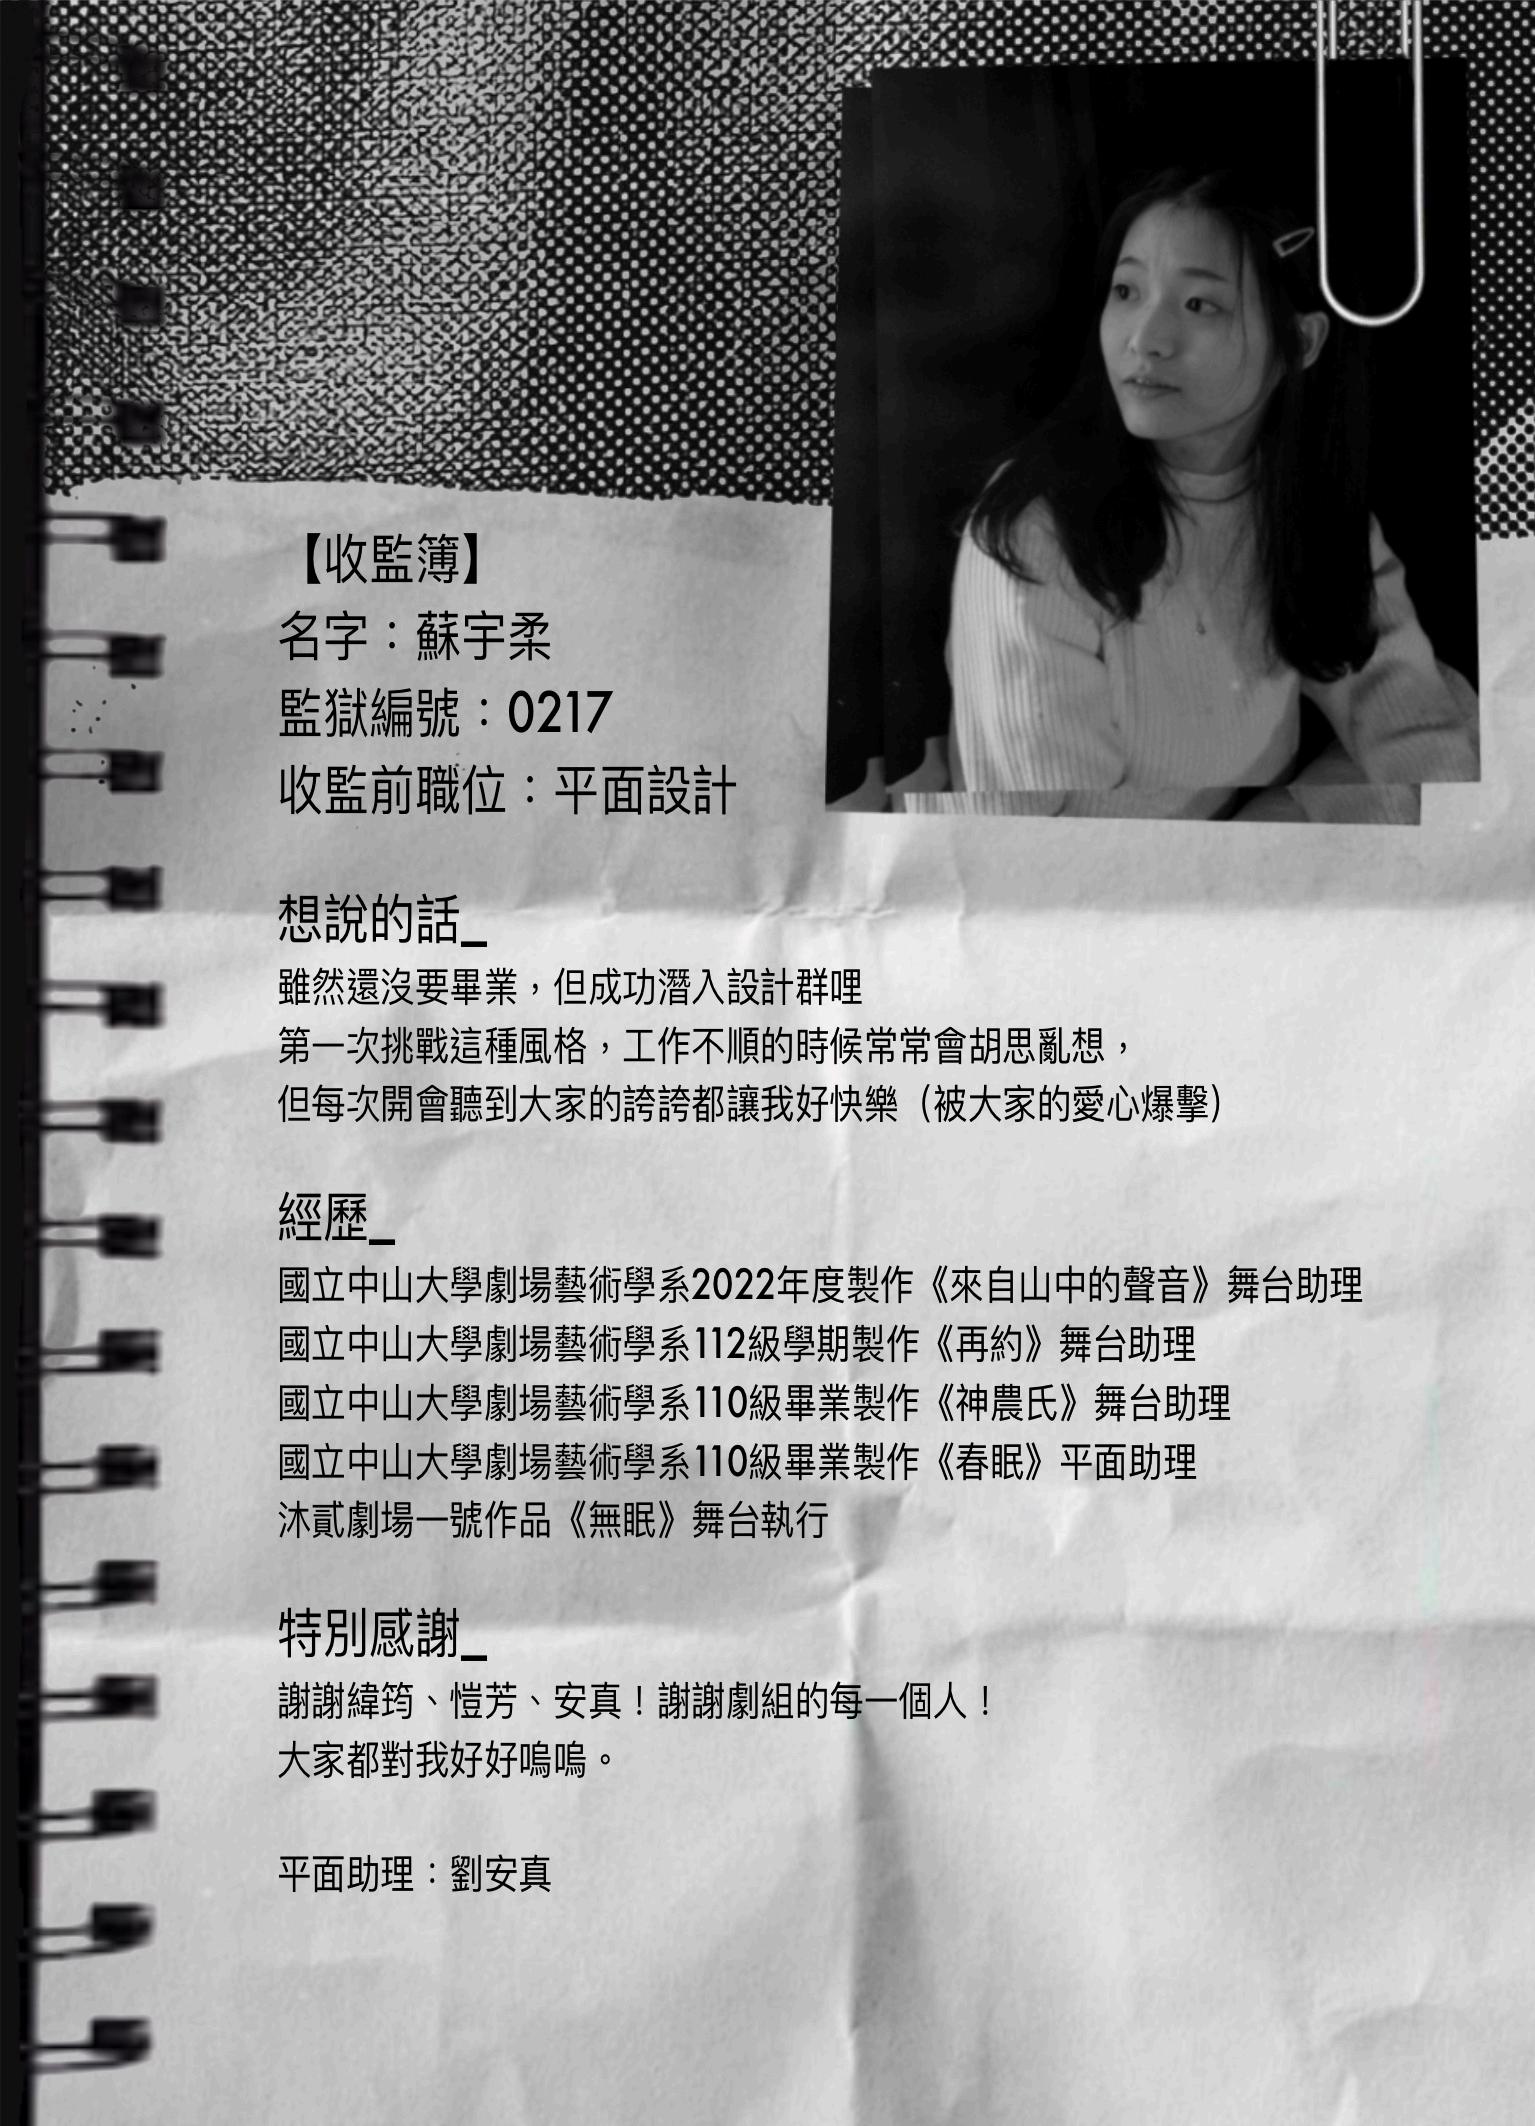 【收監簿】
名字：蘇宇柔
監獄編號：0217
收監前職位：平面設計
想說的話_
雖然還沒要畢業，但成功潛入設計群哩
第一次挑戰這種風格，工作不順的時候常常會胡思亂想，
但每次開會聽到大家的誇誇都讓我好快樂（被大家的愛心爆擊）
經歷_
國立中山大學劇場藝術學系2022年度製作《來自山中的聲音》舞台助理
國立中山大學劇場藝術學系112級學期製作《再約》舞台助理
國立中山大學劇場藝術學系110級畢業製作《神農氏》舞台助理
國立中山大學劇場藝術學系110級畢業製作《春眠》平面助理
沐貳劇場一號作品《無眠》舞台執行
特別感謝_
謝謝緯筠、愷芳、安真！謝謝劇組的每一個人！
大家都對我好好嗚嗚。
平面助理：劉安真